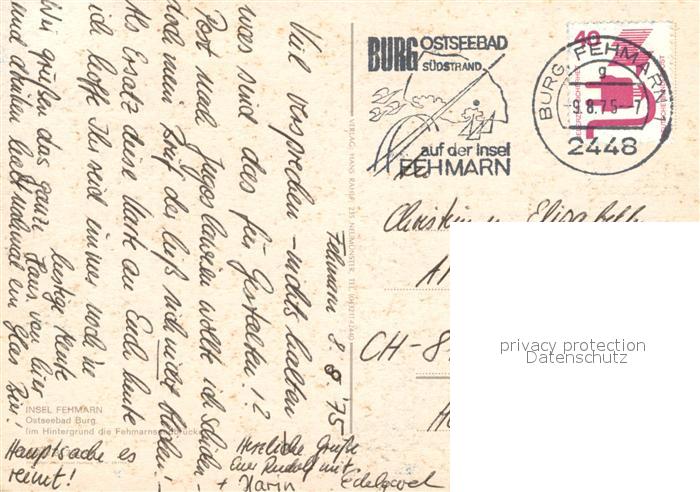 Fehmarn 8. 8. '75
Viel versprechen - nichts halten
was sind das für Gestalten!?
Post nach Jugoslawien wollte ich schicken -
doch mein Brief der ließ sich nicht blicken!
Als Ersatz diese Karte an Euch heute
ich hoffe Ihr seid immer noch
lustige Leute
Wir grüßen das ganze Haus von hier
und trinken noch mal ein Glas Bier!
Hauptsache es
reimt!
Herzliche Grüße
Eure Rudolf mit
+ Karin
INSEL FEHMARN
Ostseebad Burg
(im Hintergrund die Fehmarnsundbrücke)
VERLAG: HANS RAHE 235 NEUMÜNSTER
BURG OSTSEEBAD
SÜDSTRAND
auf der Insel
FEHMARN
40
BURG, FEHMARN
g
-9.8.75-7
2448
Christin u. Elisabeth
A
CH-8
privacy protection
Datenschutz